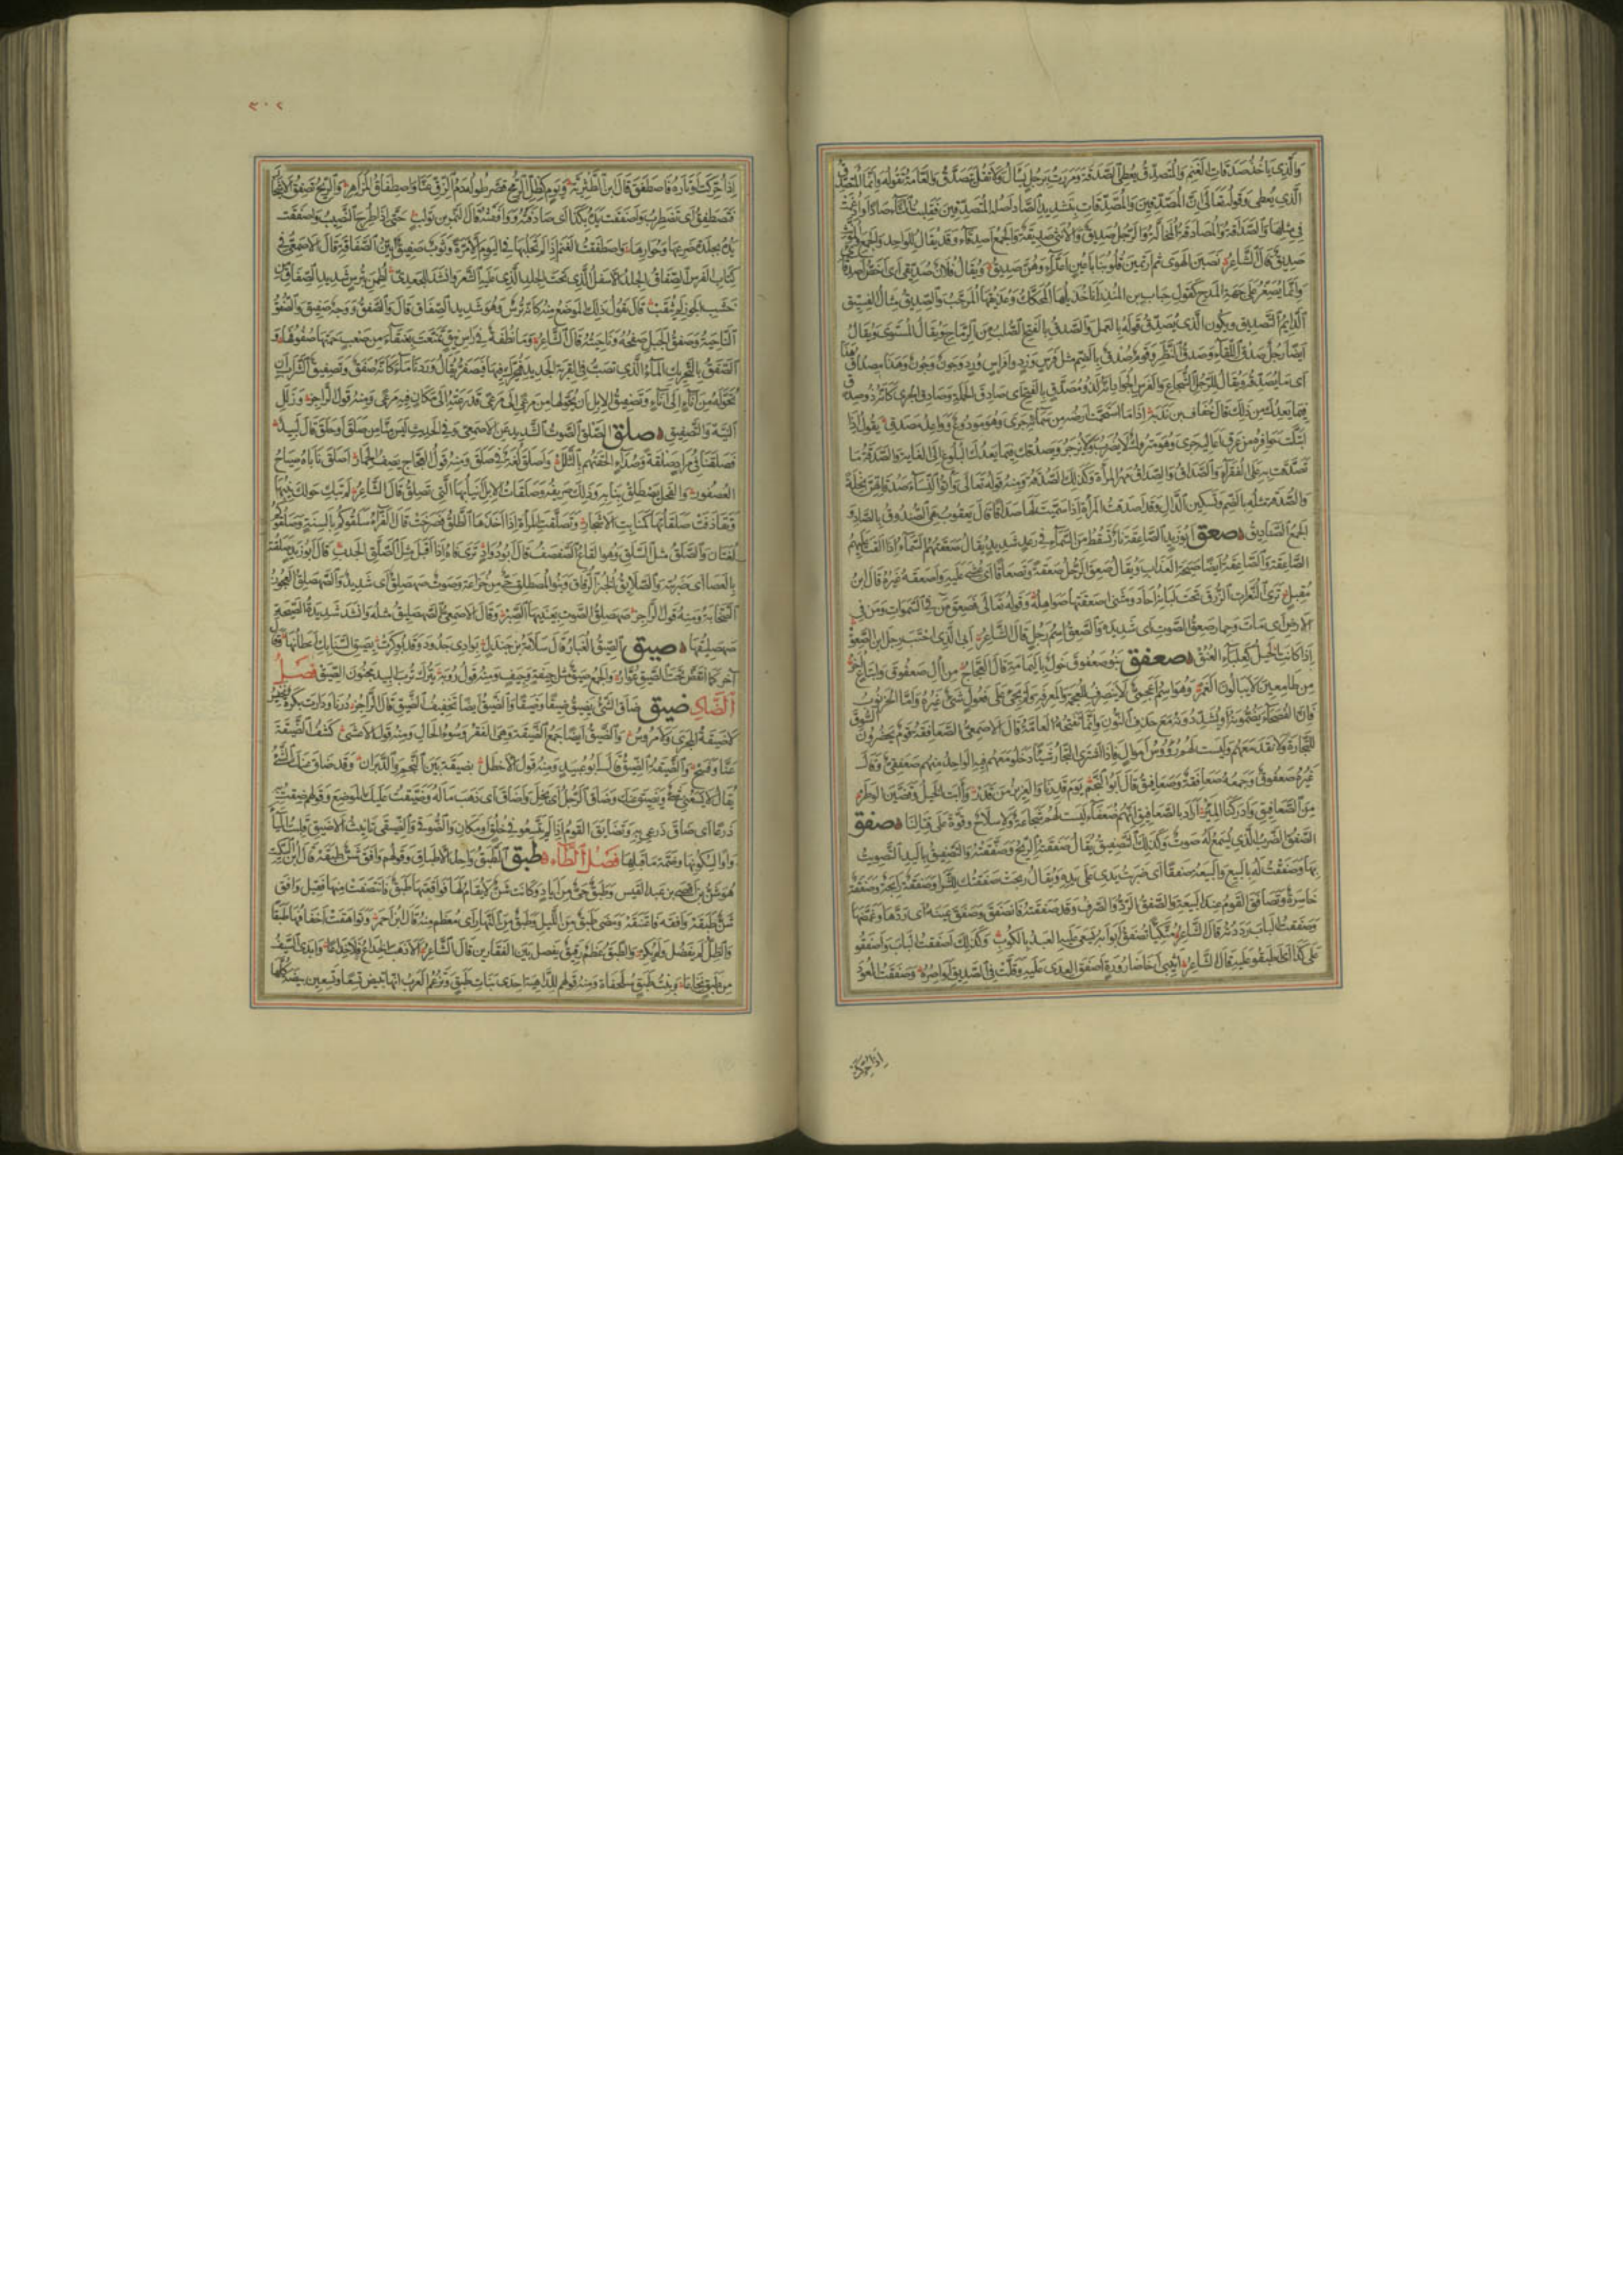 والذى يأخذ صدقات الغنم والمتصدق الذى يعطى الصدقة ومررت برجل يسأل ولا تقل يتصدق والعامة تقوله وانما المتصدق
الذى يعطى وقوله تعالى ان المصدقين والمصدقات بتشديد الصاد اصله المتصدقين فقلبت التاء صادا وادغمت
فى مثلها والصداقة والمصادقة المخالة والرجل صديق والانثى صديقة والجمع اصدقاء وقد يقال للواحد والجمع والمؤنث
صديق قال الشاعر نصبن الهوى ثم ارتمين قلوبنا باعين اعداء وهن صديق ويقال فلان صديقى اى اخص اصدقائى
وانما يصغر على جهة المدح كقول حباب بن المنذر انا جذيلها المحكك وعذيقها المرجب والصديق مثال الفسيق
الدائم التصديق ويكون الذى يصدق قوله بالعمل والصدق بالفتح الصلب من الرماح ويقال المستوى ويقال
ايضا رجل صدق اللقاء وصدق النظر وقوم صدق بالضم مثل فرس ورد وافراس ورد وجون وجون وهذا مصداق هذا
اى ما يصدقه ويقال للرجل الشجاع والفرس الجواد انه لذو مصدق بالفتح اى صادق الحملة وصادق الجرى كانه ذو صدق
فيما يعدك من ذلك قال خفاف بن ندبة اذا ما استحمت ارضه من سمائه جرى وهو مودوع وواعد مصدق يقول اذا
ابتلت حوافره من عرق اعاليه جرى وهو متروك لا يضرب ولا يزجر ويصدقك فيما يعدك البلوغ الى الغاية والصدقة ما
تصدقت به على الفقراء والصداق والصداق مهر المرأة وكذلك الصدقة ومنه قوله تعالى وآتوا النساء صدقاتهن نحلة
والصدقة مثله بالضم وتسكين الدال وقد اصدقت المرأة اذا سميت لها صداقا قال يعقوب هو الصندوق بالصاد
الجمع الصناديق صعق ابو زيد الصاعقة نار تسقط من السماء فى رعد شديد يقال صعقتهم السماء اذا القت عليهم
الصاعقة والصاعقة ايضا صيحة العذاب ويقال صعق الرجل صعقة وتصعاقا اى غشى عليه واصعقه غيره قال ابن
مقبل ترى النعرات الزرق تحت لبانه احاد ومثنى اصعقتها صواهله وقوله تعالى فصعق من فى السموات ومن فى
الارض اى مات وحمار صعق الصوت اى شديده والصعق اسم رجل قال الشاعر ابى الذى اخنب رجل ابن الصعق
اذ كانت الخيل كعلباء العنق صعفق بنو صعفوق خول باليمامة قال العجاج من آل صعفوق واتباع اخر
من طامعين لا يبالون الغمر وهو اسم اعجمى لا ينصرف للعجمة والمعرفة ولم يجئ على فعلول شئ غيره واما الخرنوب
فان الفصحاء يضمونه او يشددونه مع حذف النون وانما تفتحه العامة قال الاصمعى الصعافقة قوم يحضرون السوق
للتجارة ولا نقد معهم وليست لهم رؤوس اموال فاذا اشترى التجار شيئا دخلوا معهم فيه الواحد منهم صعفقى وقال
غيره صعفوق وجمعه صعافقة وصعافيق قال ابو النجم يوم قدرنا والعزيز من قدر وآبت الخيل وقضين الوطر
من الصعافيق وادركنا المئر اراد بالصعافيق انهم ضعفاء ليست لهم شجاعة ولا سلاح وقوة على قتالنا صفق
الصفق الضرب الذى يسمع له صوت وكذلك التصفيق يقال صفقته الريح وصفقته والتصفيق باليد التصويت
بها وصفقت له بالبيع والبيعة صفقا اى ضربت يدى على يده ويقال ربحت صفقتك للشراء وصفقة رابحة وصفقة
خاسرة وتصافق القوم عند البيعة والصفق الرد والصرف وقد صفقته فانصفق وصفق عينه اى ردها وغمضها
وصفقت الباب رددته قال الشاعر متكئا تصفق ابوابه يسعى عليه العبد بالكوب وكذلك اصفقت الباب واصفقوا
على كذا اى اطبقوا عليه قال الشاعر اثيبى اخا ضارورة اصفق العدى عليه وقلت فى الصديق اواصره وصفقت العود
اذا حركت
٣٠٢
اذا حركت اوتاره فاصطفق قال ابن الطثرية ويوم كظل الرمح قصر طوله دم الزق عنا واصطفاق المزاهر والريح تصفق الاشجار
فتصطفق اى تضطرب واصفقت يده بكذا اى صادفته ووافقته قال النمر بن تولب حتى اذا طرح النصيب واصفقت
يده بجلدة ضرعها وحوارها واصفقت الغنم اذا لم تحلبها فى اليوم الا مرة وثوب صفيق بين الصفاقة قال الاصمعى فى
كتاب الفرس الصفاق الجلد الاسفل الذى تحت الجلد الذى عليه الشعر وانشد للجعدى لطمن بترس شديد الصفاق من
خشب الجوز لم يثقب قال يقول ذلك الموضع منه كانه ترس وهو شديد الصفاق قال والصفق ووجه صفيق والصفق
الناحية وصفق الجبل صفحه وناحيته قال الشاعر وما نطفة فى رأس نيق تمنعت بعنقاء من صعب حمتها صفوقها و
الصفق بالتحريك الماء الذى تصب فى القربة الجديدة فيحرك فيها فيصفر يقال وردنا ماء كانه صفق وتصفيق الشراب ان
تحوله من اناء الى اناء وتصفيق الابل ان تحولها من مرعى الى مرعى قد رعته الى مكان فيه مرعى ومنه قول الراجز وزلل
النية والتصفيق صلق الصلق الصوت الشديد عن الاصمعى وفى الحديث ليس منا من صلق او حلق قال لبيد
فصلقنا فى مراد صلقة وصداء الحقتهم بالثلل واصلق لغة فى صلق ومنه قول العجاج يصف الحمار اصلق ناباه صياح
العصفور والفحل يصطلق بنابه وذلك صريفه وصلقات الابل انيابها التى تصلق قال الشاعر لم تبك حولك نيبها
وتقاذفت صلقاتها كمنابت الاشجار وتصلقت المرأة اذا اخذها الطلق فصرخت قال الفراء سلقوكم بالسنة وصلقوكم
لغتان والصلق مثل السلق وهو القاع الصفصف قال ابو دواد ترى فاه اذا اقبل مثل الصلق الجدب قال ابو زيد صلقته
بالعصا اى ضربته والصلائق الخبز الرقاق وبنو المصطلق حى من خزاعة وصوت صهصلق اى شديد والصهصلق العجوز
الصخابة ومنه قول الراجز صهصلق الصوت بعينيها الصبر وقال الاصمعى الصهصليق مثله وانشد شديدة الصيحة
صهصليقها صيق الصيق الغبار قال سلامة بن جندل بوادى جدود وقد بوكرت بصيق السنابك اعطانها وقال
آخر كما انقض تحت الصيق عوار والجمع صيق مثل جيفة وجيف ومنه قول رؤبة يتركن ترب البيد مجنون الصيق فصل
الضاد ضيق ضاق الشئ يضيق ضيقا وضيقا والضيق ايضا تخفيف الضيق قال الراجز درنا ودارت بكرة نخيس
لا ضيقة المجرى ولا مروس والضيق ايضا جمع الضيقة وهى الفقر وسوء الحال ومنه قول الاعشى كشف الضيقة
عنا وفسح والضيقة الضيق قال ابو عبيد ومنه قول الاخطل بضيقة بين النجم والدبران وقد ضاق عنك الشئ
يقال لا يسعنى شئ ويضيق عنك وضاق الرجل اى بخل واضاق اى ذهب ماله وضيقت عليك الموضع وقولهم ضقت به
ذرعا اى ضاق ذرعى به وتضايق القوم اذا لم يتسعوا فى خلق او مكان والضوقى والضيقى تأنيث الاضيق قلبت الياء
واوا لسكونها وضمة ما قبلها فصل الطاء طبق الطبق واحد الاطباق وقولهم وافق شن طبقة قال ابن السكيت
هو شن بن افصى بن عبد القيس وطبق حى من اياد وكانت شن لا يقام لها فواقعتها طبق فانتصفت منها فقيل وافق
شن طبقه وافقه فاعتنقه ومضى طبق من الليل وطبق من النهار اى معظم منه قال ابن احمر وتواهقت اخفافها طبقا
والظل لم يفضل ولم يكر والطبق عظم رقيق يفصل بين الفقارين قال الشاعر الا ذهب الخداع فلا خداعا وابدى السيف
عن طبق نخاعا وبنت طبق سلحفاة ومنه قولهم للداهية احدى بنات طبق وتزعم العرب انها تبيض تسعا وتسعين بيضة كلها